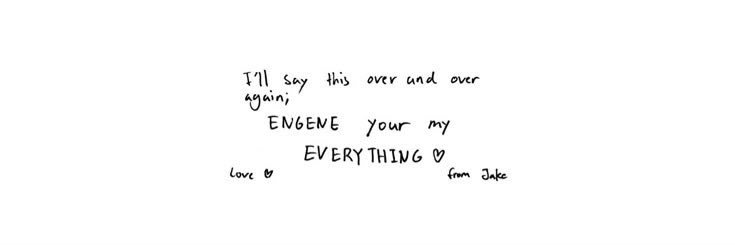 I'll say this over and over
again;
ENGENE your my
EVERYTHING ♡
Love ♡ from Jake